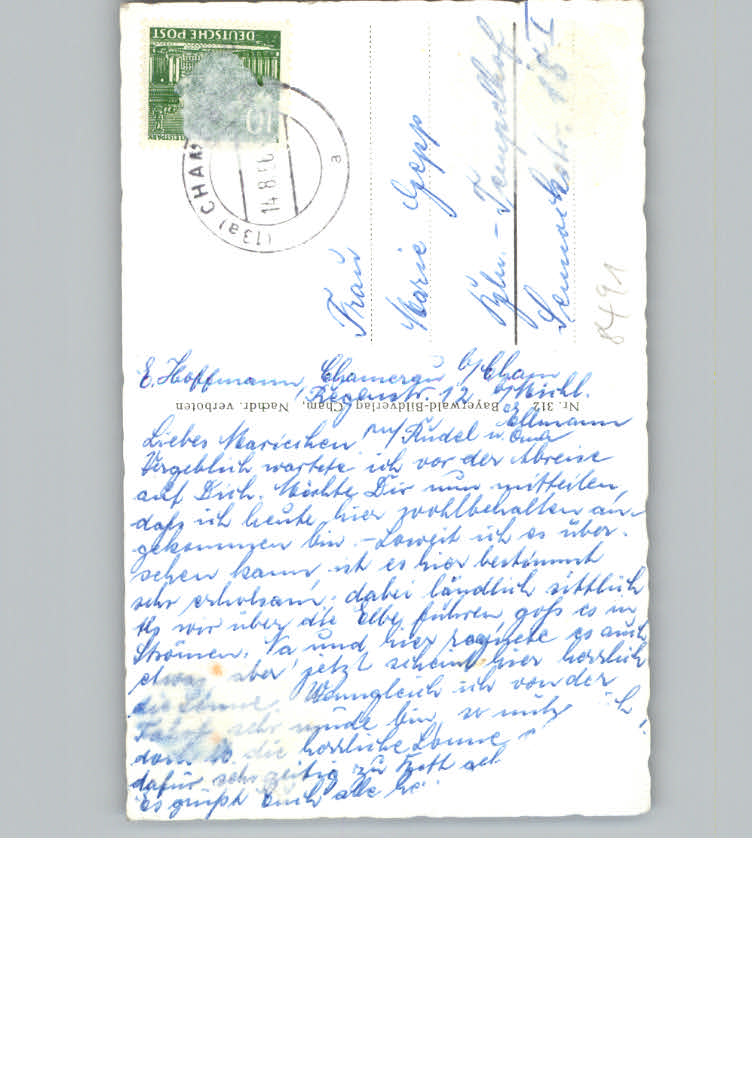 DEUTSCHE POST
10
(13a) CHAM
14.8.56
a
Frau
Marie Gepp
Bln.-Tempelhof
15 I
8491
E. Hoffmann, Chamerau b/Cham
Regenstr. 12 b/Michl.
Nr. 312 Bayerwald-Bildverlag Cham, Nachdr. verboten
Ellmann
Liebes Mariechen, Rudel u. Oma
Vergeblich wartete ich vor der Abreise
auf Dich. Möchte Dir nun mitteilen,
daß ich heute hier wohlbehalten an-
gekommen bin. - Soweit ich es über-
sehen kann, ist es hier bestimmt
sehr erholsam, dabei ländlich sittlich
Als wir über die Elbe fuhren, goß es in
Strömen. Na und hier regnete es auch
etwas, aber jetzt scheint hier herrlich
die Sonne. Wenngleich ich von der
Fahrt sehr müde bin, so nütz ich
doch die herrliche Sonne
dafür sehr zeitig zu Bett
es grüßt Euch alle